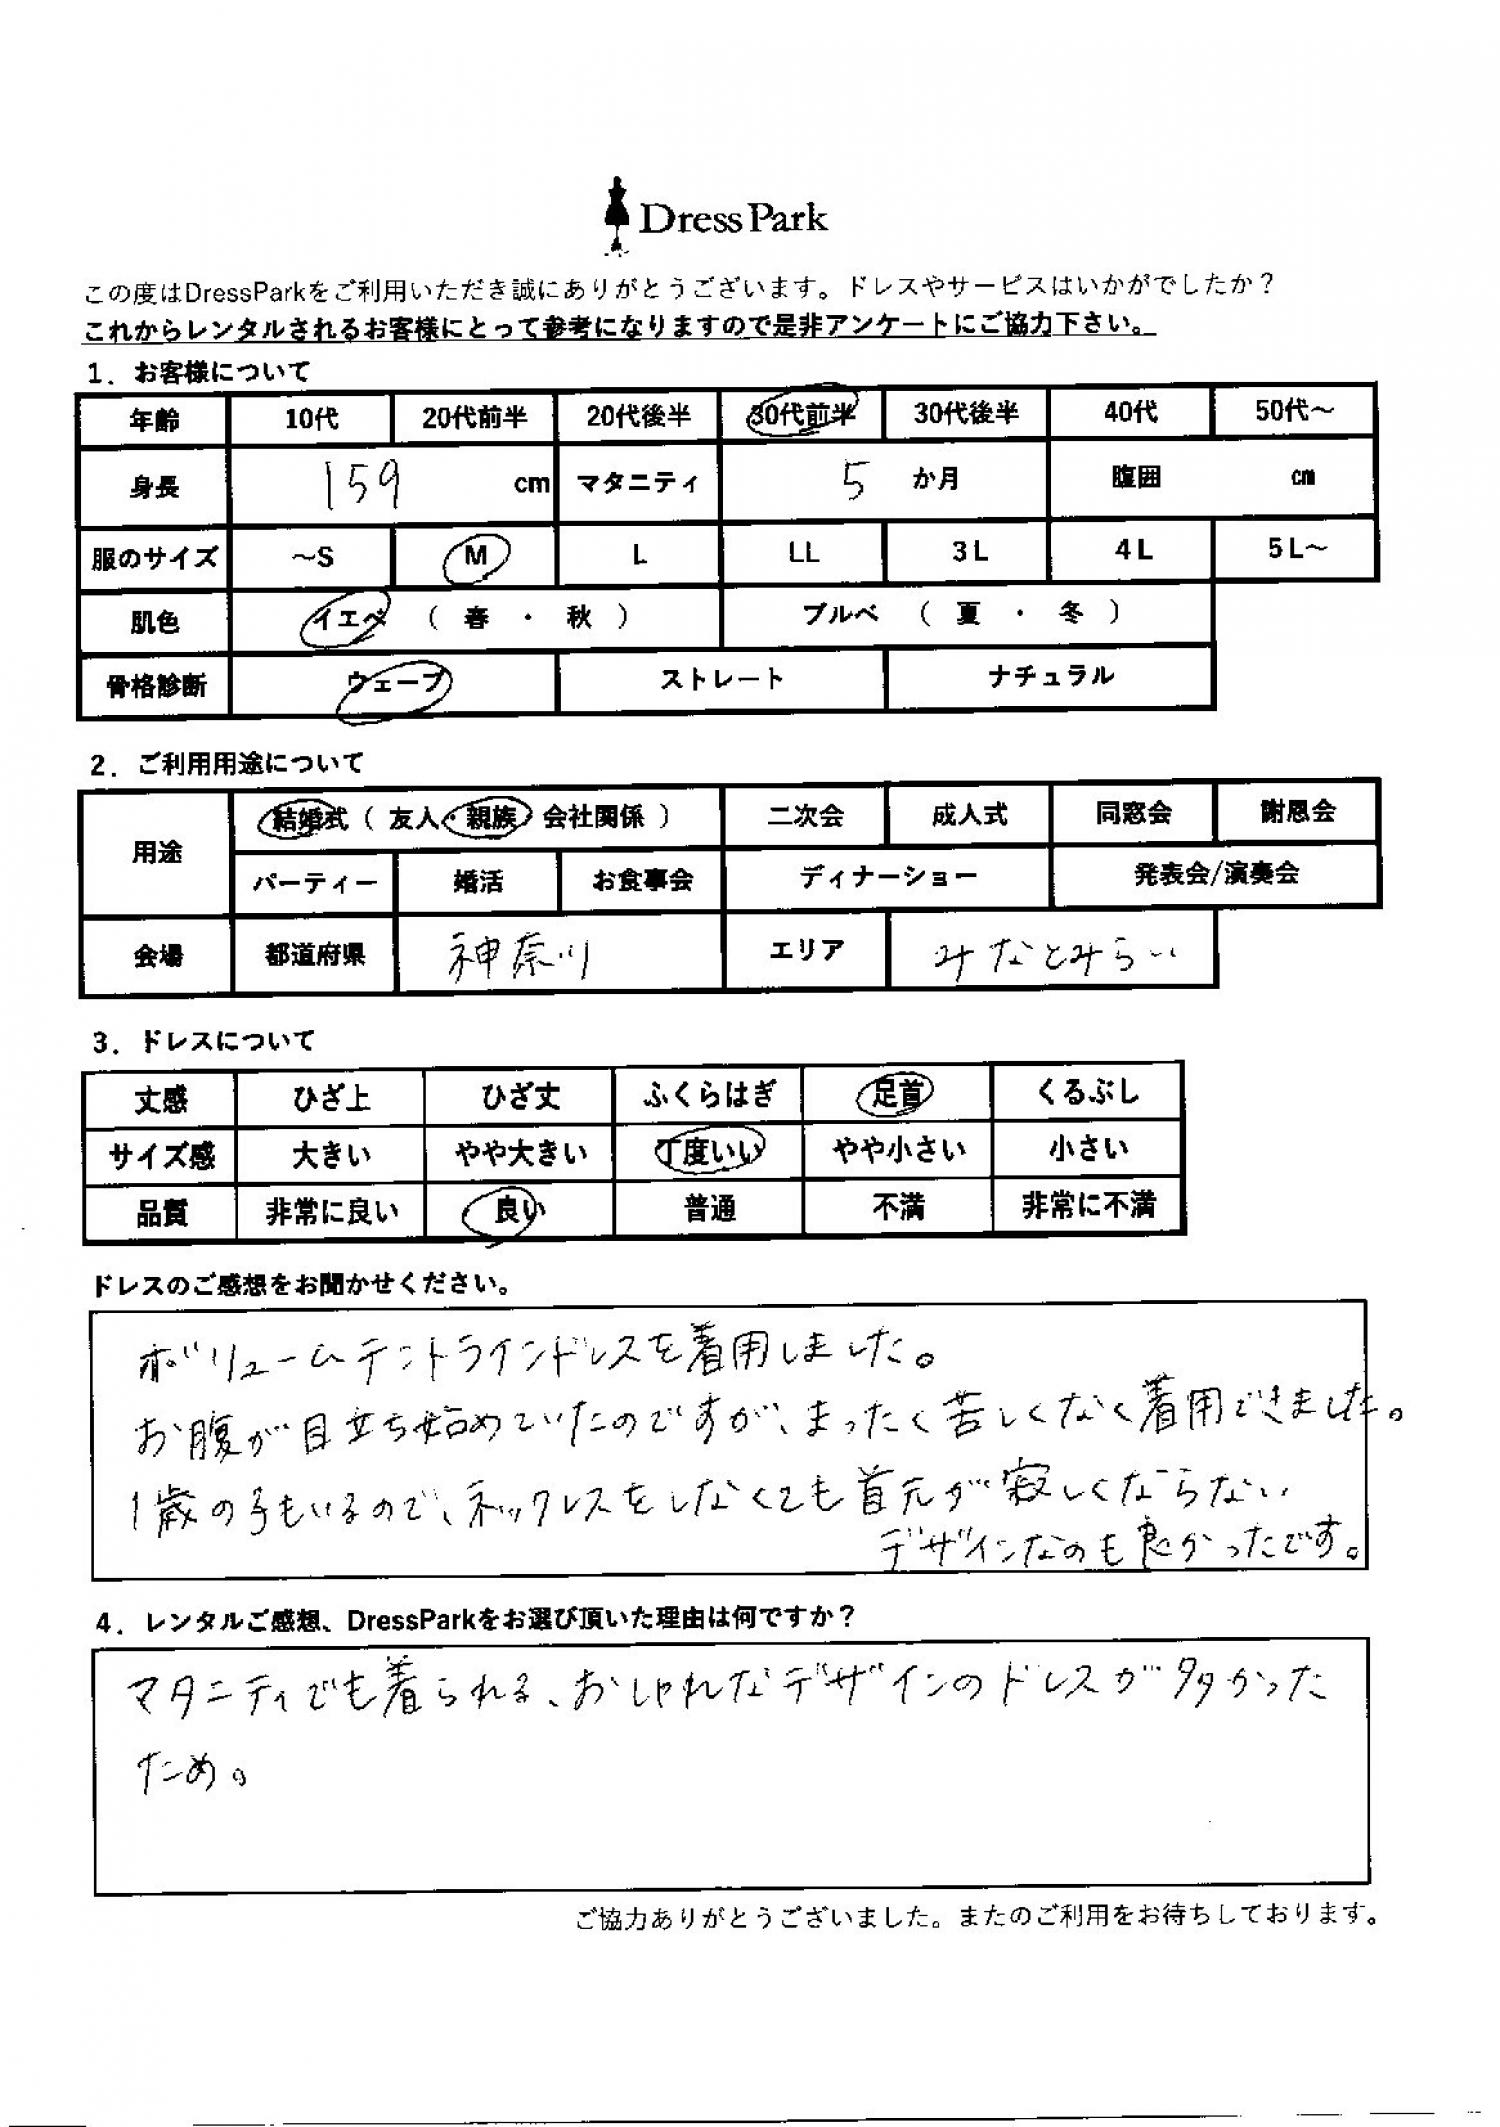 DressPark
この度はDressParkをご利用いただき誠にありがとうございます。ドレスやサービスはいかがでしたか？
これからレンタルされるお客様にとって参考になりますので是非アンケートにご協力下さい。
1．お客様について
年齢 10代 20代前半 20代後半 30代前半 30代後半 40代 50代～
身長 159 cm マタニティ 5 か月 腹囲 cm
服のサイズ ～S M L LL 3L 4L 5L～
肌色 イエベ （ 春 ・ 秋 ） ブルベ （ 夏 ・ 冬 ）
骨格診断 ウェーブ ストレート ナチュラル
2．ご利用用途について
用途 結婚式（ 友人・親族・会社関係 ） 二次会 成人式 同窓会 謝恩会
パーティー 婚活 お食事会 ディナーショー 発表会/演奏会
会場 都道府県 神奈川 エリア みなとみらい
3．ドレスについて
丈感 ひざ上 ひざ丈 ふくらはぎ 足首 くるぶし
サイズ感 大きい やや大きい 丁度いい やや小さい 小さい
品質 非常に良い 良い 普通 不満 非常に不満
ドレスのご感想をお聞かせください。
ボリュームテントラインドレスを着用しました。
お腹が目立ち始めていたのですが、まったく苦しくなく着用できました。
1歳の子もいるので、ネックレスをしなくても首元が寂しくならない
デザインなのも良かったです。
4．レンタルご感想、DressParkをお選び頂いた理由は何ですか？
マタニティでも着られる、おしゃれなデザインのドレスが多かった
ため。
ご協力ありがとうございました。またのご利用をお待ちしております。